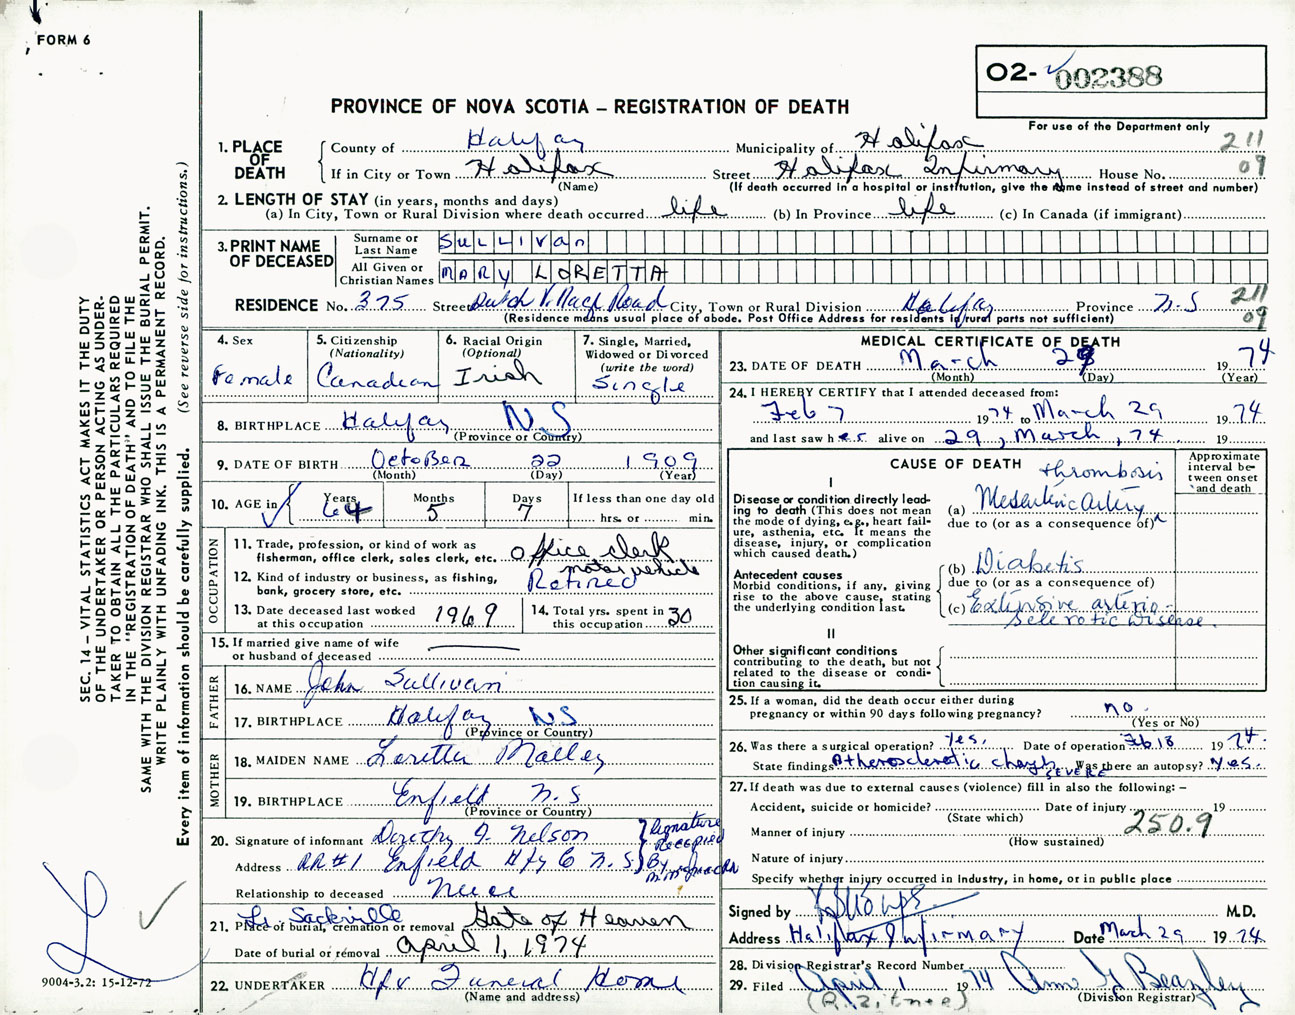 FORM 6
O2- 002388
PROVINCE OF NOVA SCOTIA – REGISTRATION OF DEATH
For use of the Department only
211
09
1. PLACE OF DEATH
County of Halifax Municipality of Halifax
If in City or Town Halifax Street Halifax Infirmary House No.
(Name) (If death occurred in a hospital or institution, give the name instead of street and number)
2. LENGTH OF STAY (in years, months and days)
(a) In City, Town or Rural Division where death occurred life (b) In Province life (c) In Canada (if immigrant)
3. PRINT NAME OF DECEASED
Surname or Last Name SULLIVan
All Given or Christian Names MARY LORETTA
RESIDENCE No. 375 Street Dutch Village Road City, Town or Rural Division Halifax Province N-S
211
09
(Residence means usual place of abode. Post Office Address for residents in rural parts not sufficient)
4. Sex
Female
5. Citizenship
(Nationality)
Canadian
6. Racial Origin
(Optional)
Irish
7. Single, Married, Widowed or Divorced
(write the word)
Single
8. BIRTHPLACE Halifax NS
(Province or Country)
9. DATE OF BIRTH OctoBer 22 1909
(Month) (Day) (Year)
10. AGE in Years 64 Months 5 Days 7 If less than one day old
hrs. or min.
OCCUPATION
11. Trade, profession, or kind of work as fisherman, office clerk, sales clerk, etc. Office clerk
12. Kind of industry or business, as fishing, bank, grocery store, etc. motor vehicle
Retired
13. Date deceased last worked at this occupation 1969
14. Total yrs. spent in this occupation 30
15. If married give name of wife or husband of deceased
FATHER
16. NAME John Sullivan
17. BIRTHPLACE Halifax NS
(Province or Country)
MOTHER
18. MAIDEN NAME Loretta Malley
19. BIRTHPLACE Enfield N.S
(Province or Country)
20. Signature of informant Dorothy J. Nelson
Address RR#1 Enfield Hfx C N.S
Signature
Received
By
Relationship to deceased Niece
21. Place of burial, cremation or removal Lr. Sackville Gate of Heaven
Date of burial or removal April 1, 1974
22. UNDERTAKER Hfx Funeral Home
(Name and address)
MEDICAL CERTIFICATE OF DEATH
23. DATE OF DEATH March 29 1974
(Month) (Day) (Year)
24. I HEREBY CERTIFY that I attended deceased from:
Feb 7 1974 to March 29 1974
and last saw her alive on 29, March, 74 19
CAUSE OF DEATH
Approximate interval between onset and death
I
Disease or condition directly leading to death (This does not mean the mode of dying, e.g., heart failure, asthenia, etc. It means the disease, injury, or complication which caused death.)
thrombosis
(a) Mesenteric artery
due to (or as a consequence of)
Antecedent causes
Morbid conditions, if any, giving rise to the above cause, stating the underlying condition last.
(b) Diabetis
due to (or as a consequence of)
(c) Extensive arterio-
sclerotic disease.
II
Other significant conditions contributing to the death, but not related to the disease or condition causing it.
25. If a woman, did the death occur either during pregnancy or within 90 days following pregnancy? no.
(Yes or No)
26. Was there a surgical operation? Yes. Date of operation Feb 18 1974.
State findings Atherosclerotic SEVERE Was there an autopsy? Yes.
27. If death was due to external causes (violence) fill in also the following: –
Accident, suicide or homicide? Date of injury 19
(State which)
Manner of injury 250.9
(How sustained)
Nature of injury
Specify whether injury occurred in industry, in home, or in public place
Signed by M.D.
Address Halifax Infirmary Date March 29 1974
28. Division Registrar's Record Number
29. Filed April 1 1974 Anne G Beazley
(Division Registrar)
SEC. 14 – VITAL STATISTICS ACT MAKES IT THE DUTY
OF THE UNDERTAKER OR PERSON ACTING AS UNDER-
TAKER TO OBTAIN ALL THE PARTICULARS REQUIRED
IN THE "REGISTRATION OF DEATH" AND TO FILE THE
SAME WITH THE DIVISION REGISTRAR WHO SHALL ISSUE THE BURIAL PERMIT.
WRITE PLAINLY WITH UNFADING INK. THIS IS A PERMANENT RECORD.
Every item of information should be carefully supplied. (See reverse side for instructions.)
9004-3.2: 15-12-72